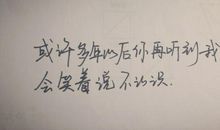 或许多年以后你再听到我
会笑着说不认识.